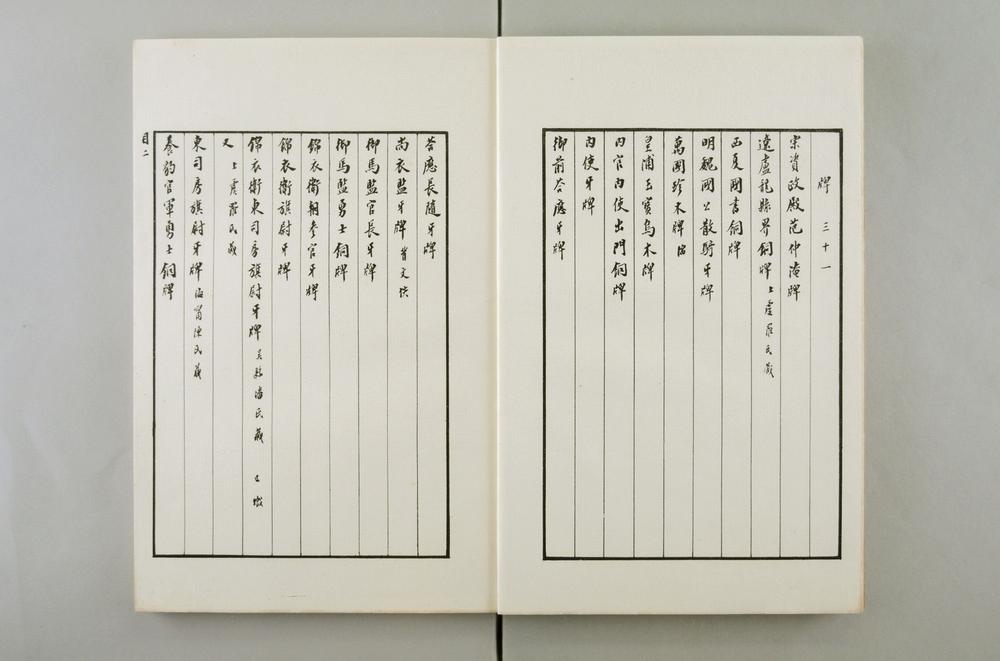 牌 三十一
宋資政殿范仲淹牌
遼盧龍縣界銅牌 上虞羅氏藏
西夏國書銅牌
明魏國公散騎牙牌
萬國珍木牌
皇浦玉寳烏木牌
内官内使出門銅牌
内使牙牌
御前答應牙牌
答應長隨牙牌
尚衣監牙牌 背文佚
御馬監官長牙牌
御馬監勇士銅牌
錦衣衛朝參官牙牌
錦衣衛旗尉牙牌
錦衣衛東司房旗尉牙牌 吳縣潘氏藏
又 上虞羅氏藏
東司房旗尉牙牌 海甯陳氏藏
養豹官軍勇士銅牌
目二